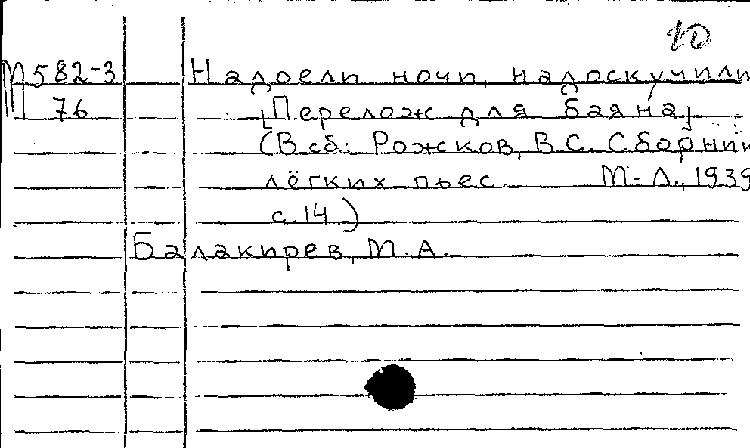 10
М582-3 Надоели ночи, надоскучили
76 [Перелож для баяна]
(В сб: Рожков, В.С. Сборник
лёгких пьес М.-Л., 1939
с.14.)
Балакирев, М.А.